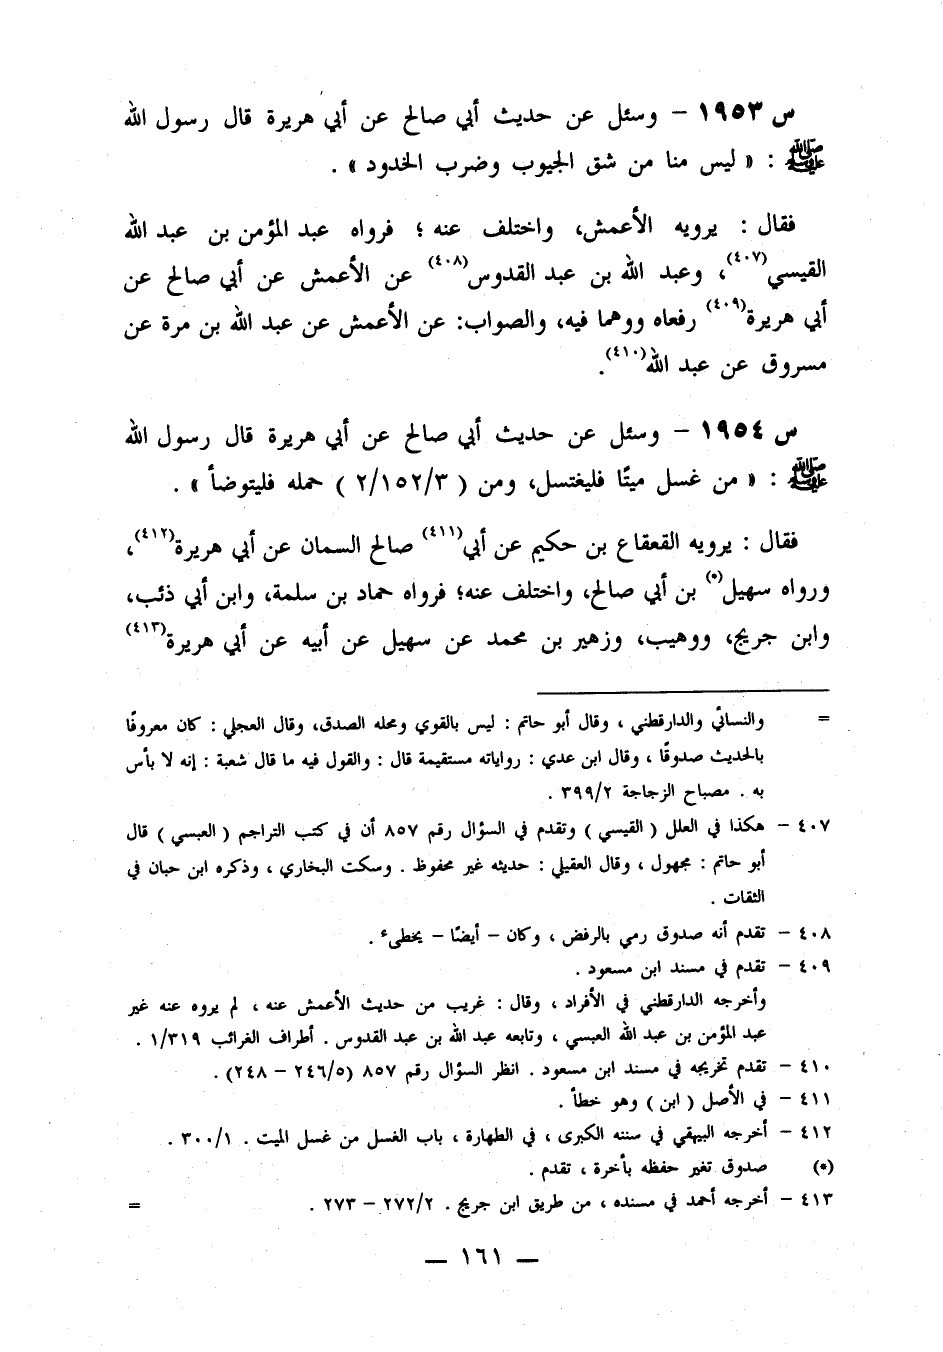 س ١٩٥٣ – وسئل عن حديث أبي صالح عن أبي هريرة قال رسول الله
ﷺ : « ليس منا من شق الجيوب وضرب الخدود » .
فقال : يرويه الأعمش، واختلف عنه ؛ فرواه عبد المؤمن بن عبد الله
القيسي(٤٠٧)، وعبد الله بن عبد القدوس(٤٠٨) عن الأعمش عن أبي صالح عن
أبي هريرة(٤٠٩) رفعاه ووهما فيه، والصواب: عن الأعمش عن عبد الله بن مرة عن
مسروق عن عبد الله(٤١٠).
س ١٩٥٤ – وسئل عن حديث أبي صالح عن أبي هريرة قال رسول الله
ﷺ : « من غسل ميتًا فليغتسل، ومن ( ٢/١٥٢/٣ ) حمله فليتوضأ » .
فقال : يرويه القعقاع بن حكيم عن أبي(٤١١) صالح السمان عن أبي هريرة(٤١٢)،
ورواه سهيل(*) بن أبي صالح، واختلف عنه؛ فرواه حماد بن سلمة، وابن أبي ذئب،
وابن جريج، ووهيب، وزهير بن محمد عن سهيل عن أبيه عن أبي هريرة(٤١٣)
= والنسائي والدارقطني ، وقال أبو حاتم : ليس بالقوي ومحله الصدق، وقال العجلي : كان معروفًا
بالحديث صدوقًا ، وقال ابن عدي : رواياته مستقيمة قال : والقول فيه ما قال شعبة : إنه لا بأس
به . مصباح الزجاجة ٣٩٩/٢ .
٤٠٧ – هكذا في العلل ( القيسي ) وتقدم في السؤال رقم ٨٥٧ أن في كتب التراجم ( العبسي ) قال
أبو حاتم : مجهول ، وقال العقيلي : حديثه غير محفوظ . وسكت البخاري ، وذكره ابن حبان في
الثقات .
٤٠٨ – تقدم أنه صدوق رمي بالرفض ، وكان – أيضًا – يخطىء .
٤٠٩ – تقدم في مسند ابن مسعود .
وأخرجه الدارقطني في الأفراد ، وقال : غريب من حديث الأعمش عنه ، لم يروه عنه غير
عبد المؤمن بن عبد الله العبسي ، وتابعه عبد الله بن عبد القدوس . أطراف الغرائب ١/٣١٩ .
٤١٠ – تقدم تخريجه في مسند ابن مسعود . انظر السؤال رقم ٨٥٧ (٢٤٦/٥ – ٢٤٨) .
٤١١ – في الأصل ( ابن ) وهو خطأ .
٤١٢ – أخرجه البيهقي في سننه الكبرى ، في الطهارة ، باب الغسل من غسل الميت . ٣٠٠/١ .
(*) صدوق تغير حفظه بأخرة ، تقدم .
٤١٣ – أخرجه أحمد في مسنده ، من طريق ابن جريج . ٢٧٢/٢ – ٢٧٣ . =
— ١٦١ —